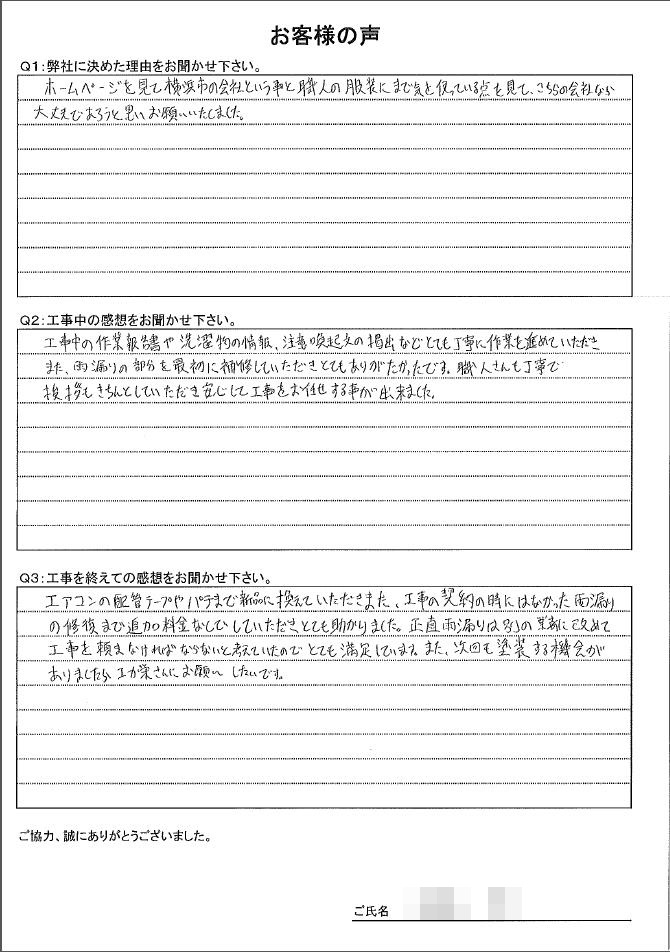 お客様の声
Q1:弊社に決めた理由をお聞かせ下さい。
ホームページを見て横浜市の会社という事と職人の服装にまで気を使っている点を見て、こちらの会社なら
大丈夫であろうと思いお願いいたしました。
Q2:工事中の感想をお聞かせ下さい。
工事中の作業報告書や洗濯物の情報、注意喚起文の掲出などとても丁寧に作業を進めていただき
また、雨漏りの部分を最初に補修していただきとてもありがたかったです。職人さんも丁寧で
挨拶もきちんとしていただき安心して工事をお任せする事が出来ました。
Q3:工事を終えての感想をお聞かせ下さい。
エアコンの配管テープやパテまで新品に換えていただきまた、工事の契約の時にはなかった雨漏り
の修復まで追加の料金なしでしていただきとても助かりました。正直雨漏りは別の業者に改めて
工事を頼まなければならないと考えていたのでとても満足しています。また、次回も塗装する機会が
ありましたら さんにお願いしたいです。
ご協力、誠にありがとうございました。
ご氏名